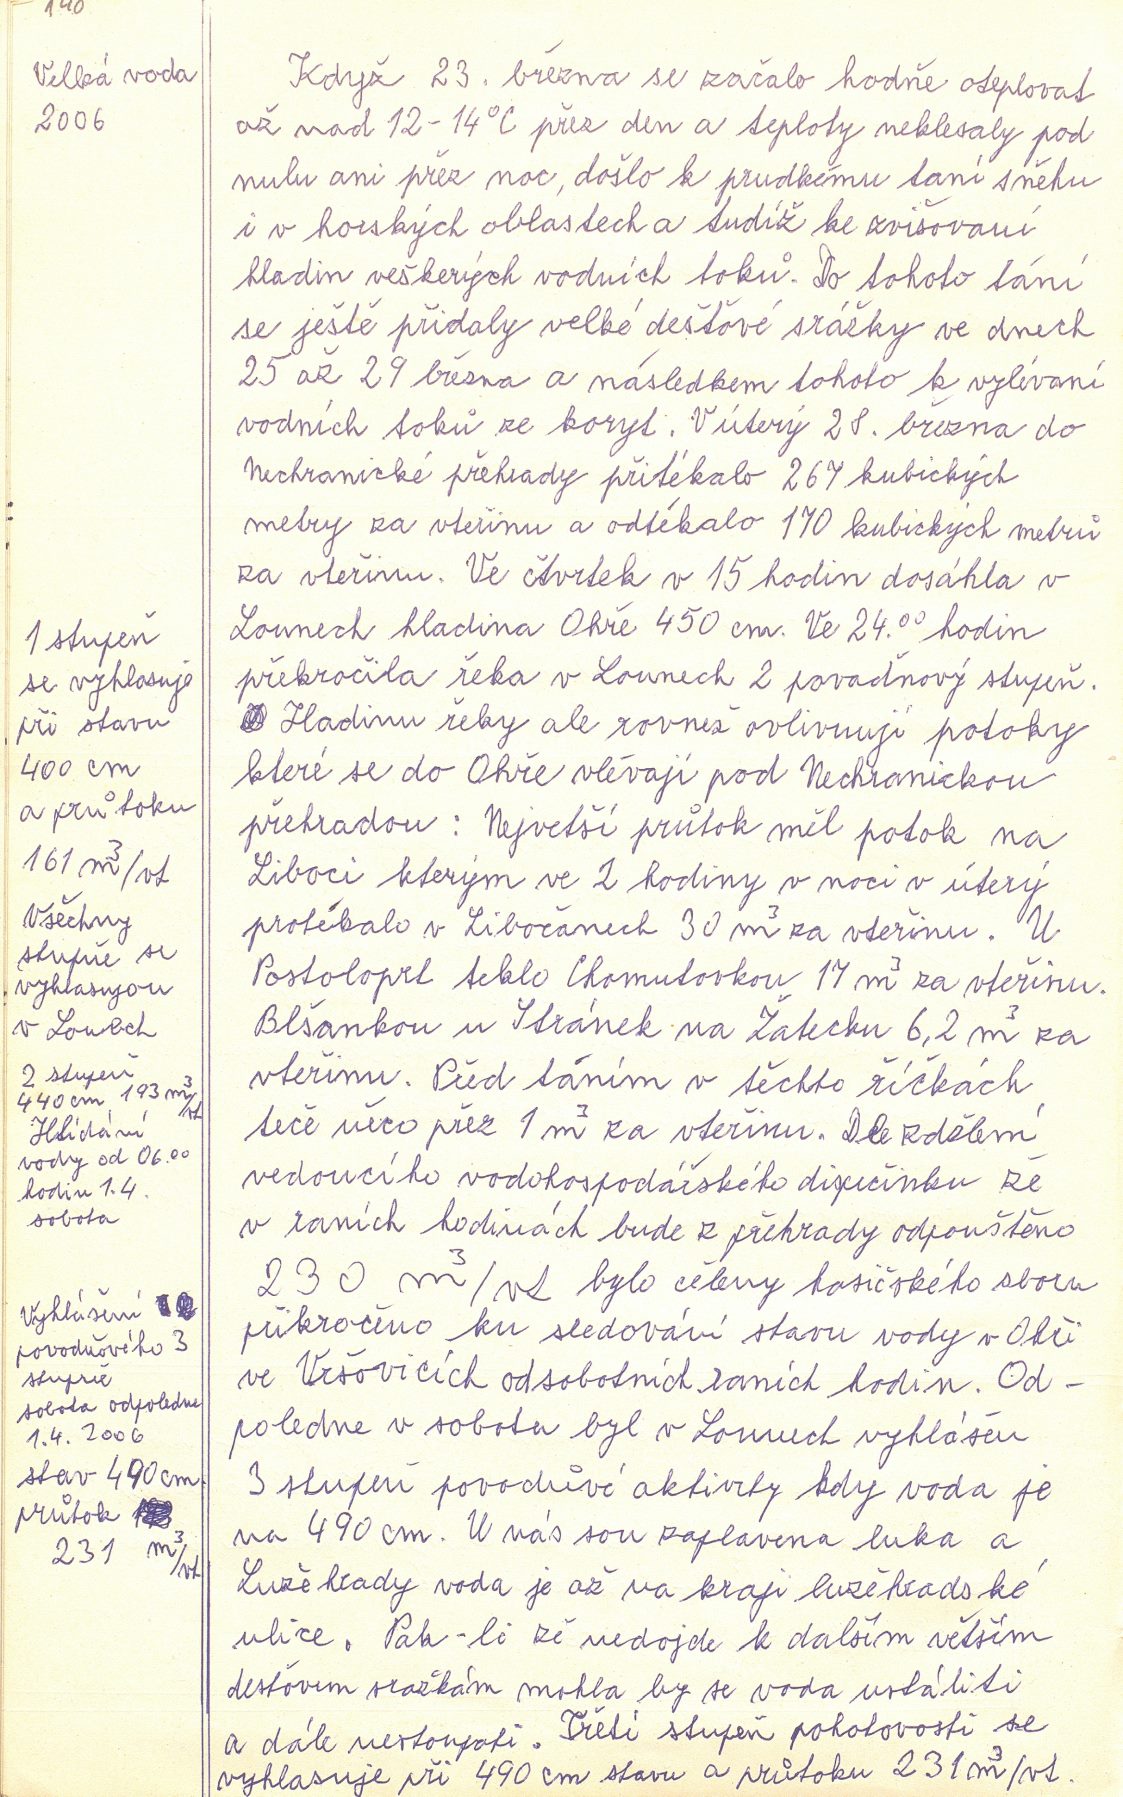 140
Velká voda
2006
Když 23. března se začalo hodně oteplovat
až nad 12-14°C přez den a teploty neklesaly pod
nulu ani přez noc, došlo k prudkému taní sněhu
i v horských oblastech a tudíž ke zvišovaní
hladin veškerých vodních toků. Do tohoto tání
se ještě přidaly velké dešťové srážky ve dnech
25 až 29 března a následkem tohoto k vylévaní
vodních toků ze koryt. V úterý 28. března do
Nechranické přehrady přitékalo 267 kubických
metry za vteřinu a odtékalo 170 kubických metrů
za vteřinu. Ve čtvrtek v 15 hodin dosáhla v
Lounech hladina Ohře 450 cm. Ve 24.00 hodin
překročila řeka v Lounech 2 povadňový stupeň.
Hladinu řeky ale rovnež ovlivnují potoky
které se do Ohře vlévají pod Nechranickou
přehradou: Největší průtok měl potok na
Liboci kterým ve 2 hodiny v noci v úterý
protékalo v Libočanech 30 m³ za vteřinu. U
Postoloprt teklo Chomutovkou 17 m³ za vteřinu.
Blšankou u Stránek na Žatecku 6,2 m³ za
vteřinu. Před táním v těchto říčkách
teče něco přez 1 m³ za vteřinu. Dle zdělení
vedoucího vodohospodářského dispečinku že
v raních hodinách bude z přehrady odpouštěno
230 m³/vt bylo členy hasičského sboru
přikročeno ku sledování stavu vody v Ohři
ve Vršovicích od sobotních raních hodin. Od-
poledne v sobotu byl v Lounech vyhlášen
3 stupeň povodňvé aktivity kdy voda je
na 490 cm. U nás sou zaplavena luka a
Luzěhrady voda je až na kraji luzěhradské
ulice. Pak-li že nedojde k dalším větším
destovím sražkám mohla by se voda ustáliti
a dále nestoupati. Třetí stupeň pohotovosti se
vyhlasuje při 490 cm stavu a průtoku 231 m³/vt.
1 stupeň
se vyhlasuje
při stavu
400 cm
a průtoku
161 m³/vt
Všechny
stupně se
vyhlasujou
v Lounech
2 stupeň
440 cm 193 m³/vt
Hlídání
vody od 06.00
hodin 1.4.
sobota
Vyhlášení
povodňového 3
stupně
sobota odpoledne
1.4. 2006
stav 490 cm.
průtok
231 m³/vt